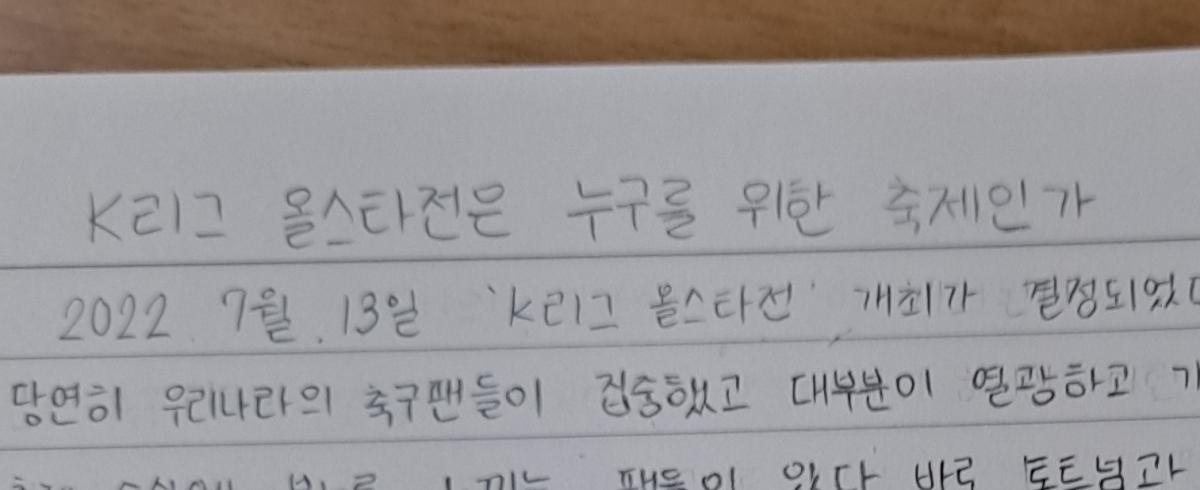 K리그 올스타전은 누구를 위한 축제인가
2022. 7월. 13일 'K리그 올스타전' 개최가 결정되었다
당연히 우리나라의 축구팬들이 집중했고 대부분이 열광하고
팬들이 있다 바로 토트넘과